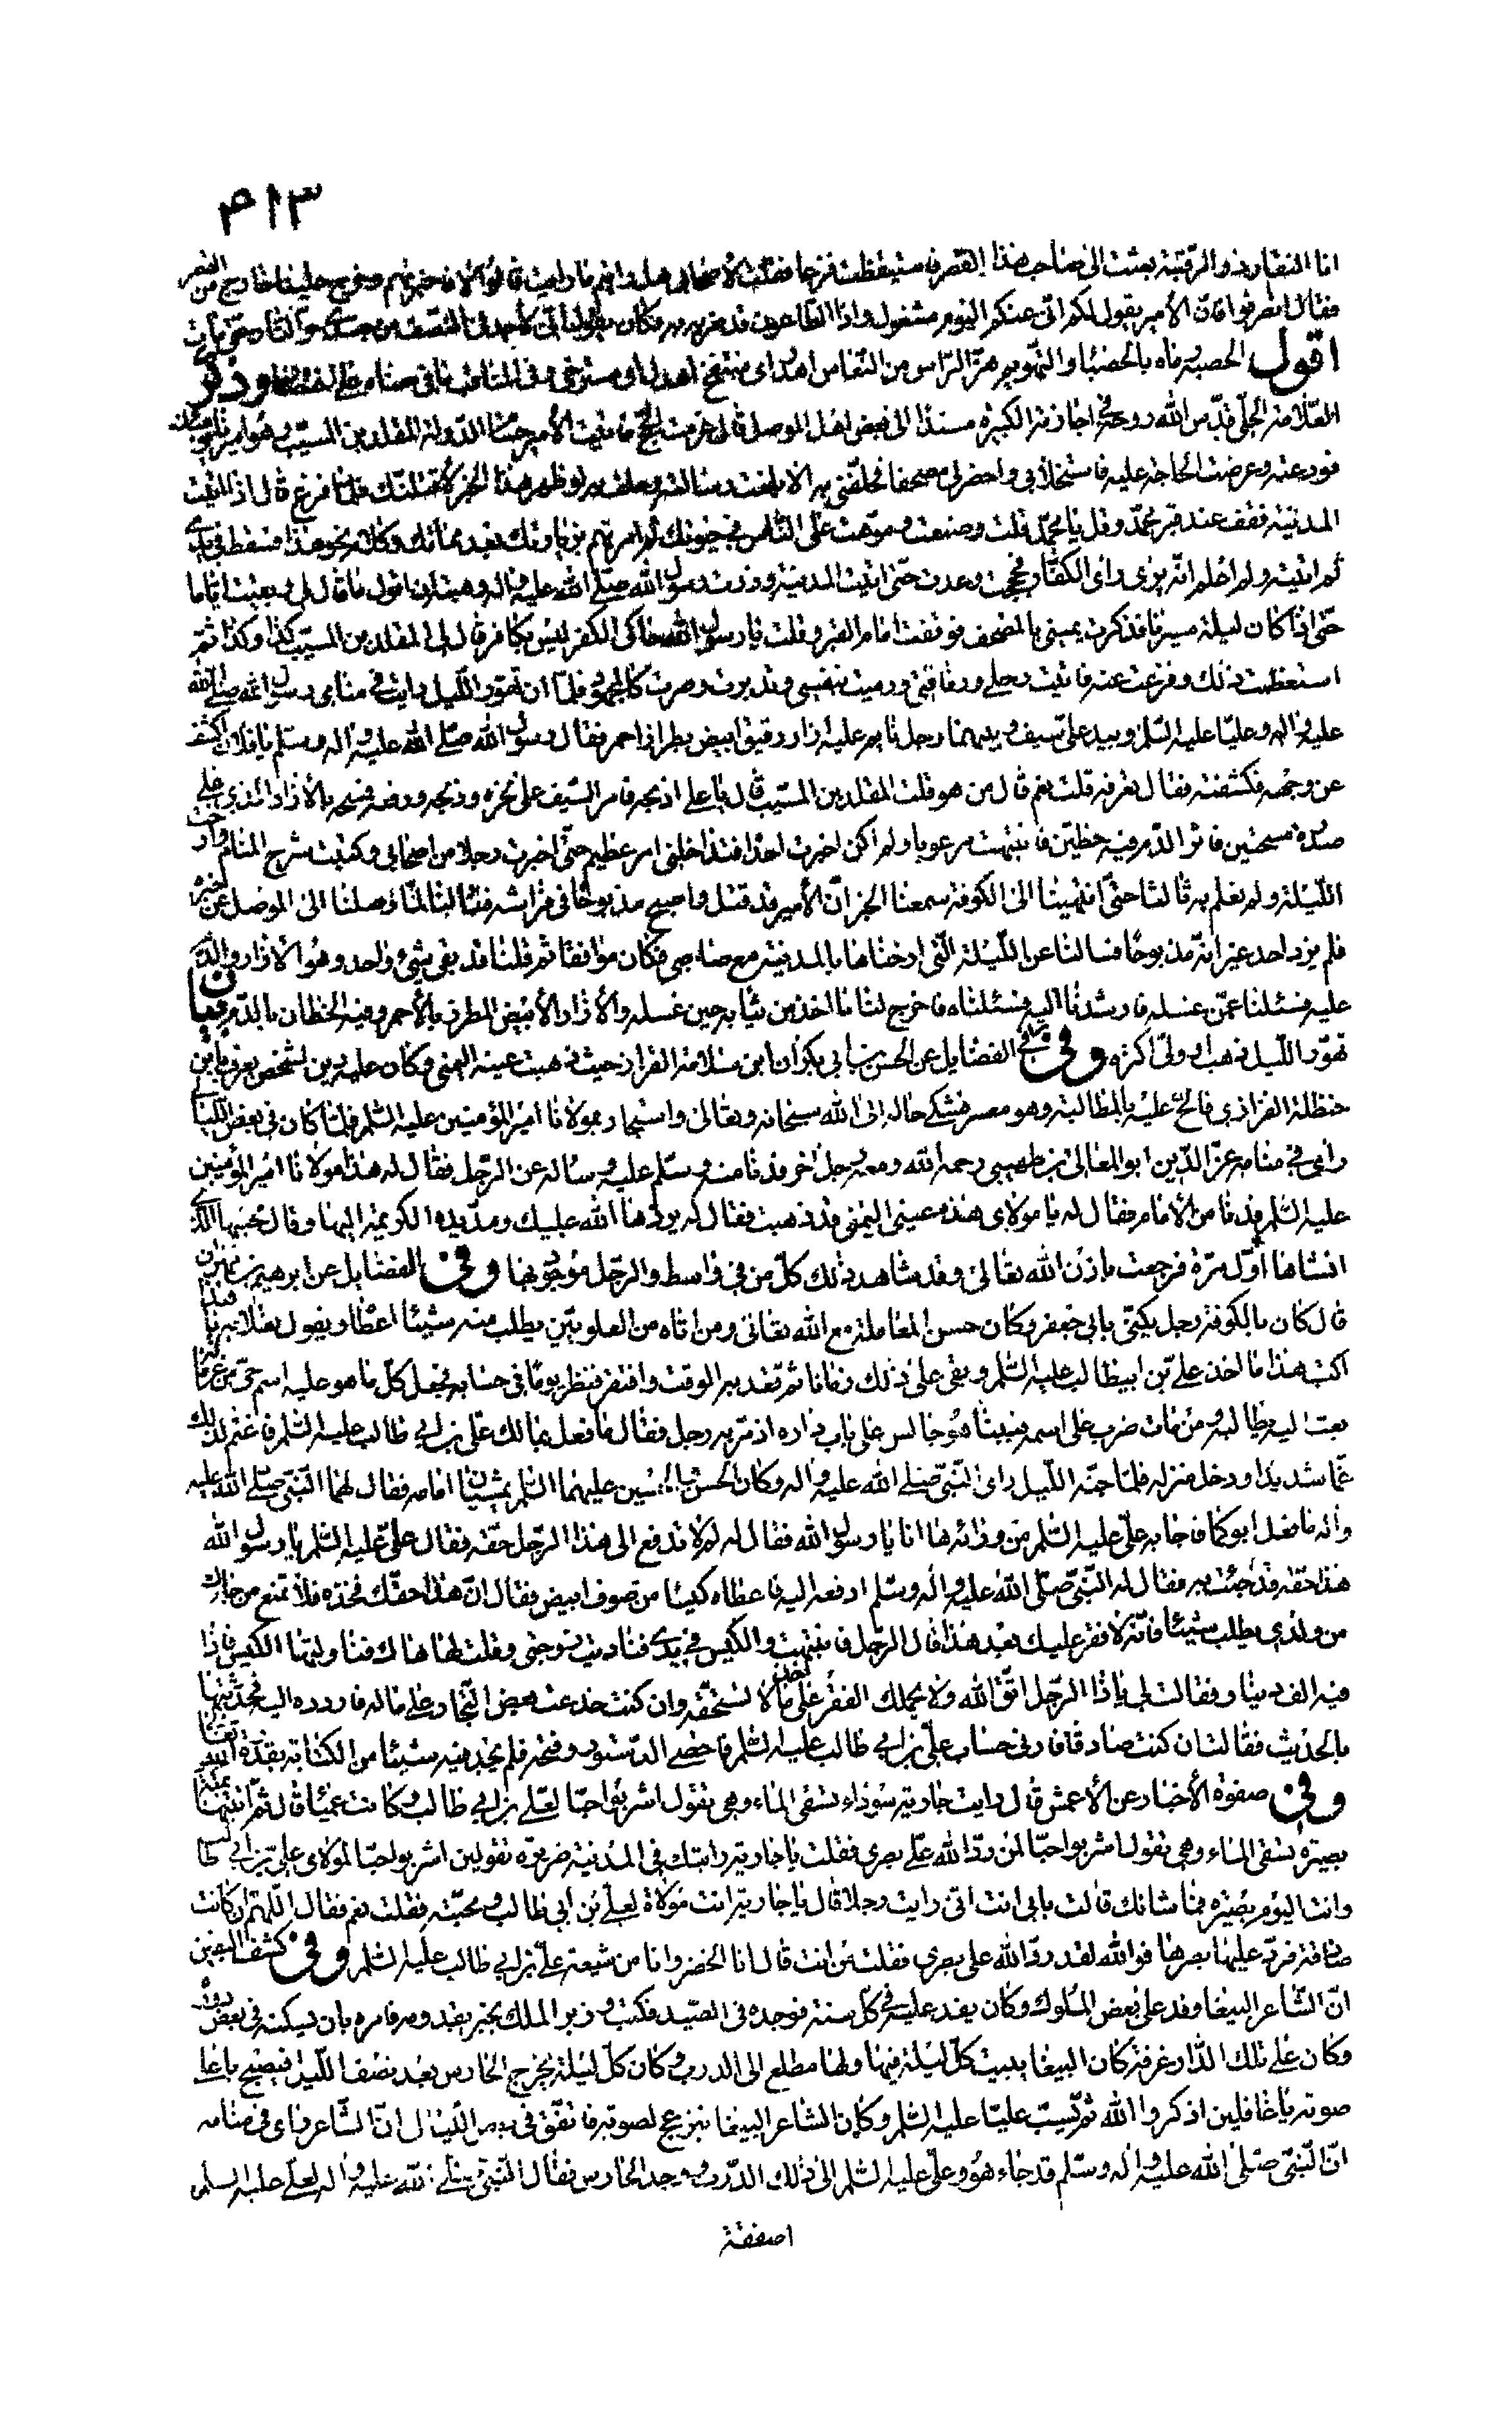 ٣١٣
انا النقاد ذو الرقبة بعثت الى صاحب هذا القصر فاستيقظت فزعا فقلت لأصحابي هل رايتم ما رايت قالوا لا فاخبرتهم وخرج علينا خارج من القصر
فقال انصرفوا فان الأمير يقول لكم انى عنكم اليوم مشغول واذا الطاعون قد ضربه فكان يقول انى لأجد فى النصف من جسدى حر النار حتى مات
اقول الحصبه رماه بالحصباء والتهويم هز الراس من النعاس اهدل اى مسترخى وفى المناقب وذكر
العلامة الحلى قدس الله روحه فى اجازته الكبيرة مسندا الى بعض اهل الموصل قال عزمت الحج فاتيت الأمير حسام الدولة المقلد بن المسيب وهو امير
فودعته وعرضت الحاجة عليه فاستخلا بى واحضر لى مصحفا فحلفنى به الا بلغت رسالته وحلف به لو ظهر هذا الخبر لأقتلنك فلما فرغ قال اذا اتيت
المدينة فقف عند قبر محمد وقل يا محمد قلت وصنعت وموهت على الناس فى حيوتك ثم امرتهم بزيارتك بعد مماتك وكلام نحو هذا فسقط فى يدى
ثم اتيته ولم اعلم انه يرى راى الكفار فحججت وعدت حتى اتيت المدينة وزرت رسول الله صلى الله عليه واله وهبته ان اقول ما قال لى وبقيت اياما
حتى اذا كان ليلة مسيرنا فذكرت يمينى بالمصحف فوقفت امام القبر وقلت يا رسول الله حاكى الكفر ليس بكافر قال لى المقلد بن المسيب كذا وكذا ثم
استعظمت ذلك وفزعت عنه فاتيت رحلى ورفاقتى ورميت بنفسى وتدبرت وصرت كالمجهود فلما ان تهور الليل رايت فى منامى رسول الله صلى الله
عليه واله وعليا عليه السلم وبيد على سيف وبينهما رجل نايم عليه ازار رقيق ابيض بطراز احمر فقال رسول الله صلى الله عليه واله وسلم يا فلان اكشف
عن وجهه فكشفته فقال تعرفه قلت نعم قال من هو قلت المقلد بن المسيب قال يا على اذبحه فامر السيف على نحره وذبحه ورفعه فمسحه بالأزار الذى على
صدره مسحتين فاثر الدم فيه خطين فانتبهت مرعوبا ولم اكن اخبرت احدا فتداخلنى امر عظيم حتى اخبرت رجلا من اصحابى وكتبت شرح المنام وارخت
الليلة ولم نعلم به ثالثا حتى انتهينا الى الكوفة سمعنا الخبر ان الأمير قد قتل واصبح مذبوحا فى فراشه فسالنا لما وصلنا الى الموصل عن خبره
فلم يزد احد غير انه مذبوحا فسالنا عن الليلة التى ارخناها بالمدينة مع صاحبى فكان موافقا ثم قلنا قد بقى شىء واحد وهو الأزار والدم
عليه فسئلنا عمن غسله فارشدنا اليه فسئلناه فاخرج لنا ما اخذ من ثيابه حين غسله والأزار الأبيض المطرز بالأحمر وفيه الخطان بالدم بيان
تهور الليل ذهب او ولى اكثره وفى الفضايل عن الحسن بن ابى بكر ان ابن سلامة القزاز حيث ذهبت عينه اليمنى وكان عليه دين لشخص يعرف بابن
حنظلة الفزارى فالح عليه بالمطالبة وهو معسر فشكى حاله الى الله سبحانه وتعالى واستجار بمولانا امير المؤمنين عليه السلم فلما كان فى بعض الليالى
راى فى منامه عز الدين ابو المعالى بن طبيبى رحمه الله ومعه رجل اخر فدنا منه وسلم عليه وساله عن الرجل فقال له هذا مولانا امير المؤمنين
عليه السلم فدنا من الأمام فقال له يا مولاى هذه عينى اليمنى قد ذهبت فقال له يردها الله عليك ومد يده الكريمة اليها وقال يحييها الذى
انشاها اول مرة فرجعت باذن الله تعالى وقد شاهد ذلك كل من فى واسط والرجل موجود بها وفى الفضايل عن ابرهيم بن مهران
قال كان بالكوفة رجل يكنى بابى جعفر وكان حسن المعاملة مع الله تعالى ومن اتاه من العلويين يطلب منه شيئا اعطاه ويقول لغلامه يا هذا
اكتب هذا ما اخذ على بن ابيطالب عليه السلم وبقى على ذلك زمانا ثم قعد به الوقت وافتقر فنظر يوما فى حسابه فجعل كل ما هو عليه اسم حى من غرمائه
بعث اليه يطالبه ومن مات ضرب على اسمه فبينا هو جالس على باب داره اذ مر به رجل فقال ما فعل بمالك على بن ابى طالب عليه السلم فاغتم لذلك
غما شديدا ودخل منزله فلما جنه الليل راى النبى صلى الله عليه واله وكان الحسن والحسين عليهما السلم يمشيان امامه فقال لهما النبى صلى الله عليه
واله ما فعل ابوكما فاجابه على عليه السلم من ورائه ها انا يا رسول الله فقال له لم لا تدفع الى هذا الرجل حقه فقال على عليه السلم يا رسول الله
هذا حقه قد جئت به فقال له النبى صلى الله عليه واله وسلم ادفعه اليه فاعطاه كيسا من صوف ابيض فقال ان هذا حقك فخذه فلا تمنع من جاءك
من ولدى يطلب شيئا فانه لا فقر عليك بعد هذا قال الرجل فانتبهت والكيس فى يدى فناديت زوجتى وقلت لها هاك فناولتها الكيس فاذا
فيه الف دينار فقالت لى يا ذا الرجل اتق الله ولا يحملك الفقر على اخذ ما لا تستحقه وان كنت خدعت بعض التجار على ماله فاردده اليه فحدثتها
بالحديث فقالت ان كنت صادقا فارنى حساب على بن ابى طالب عليه السلم فاحضر الدستور وفتحه فلم يجد فيه شيئا من الكتابة بقدرة الله تعالى
وفى صفوة الأخبار عن الأعمش قال رايت جارية سوداء تسقى الماء وهى تقول اشربوا حبا لعلى بن ابى طالب وكانت عمياء قال ثم اتيتها بمكة
بصيرة تسقى الماء وهى تقول اشربوا حبا لمن رد الله على بصرى فقلت يا جارية رايتك فى المدينة ضريرة تقولين اشربوا حبا لمولاى على بن ابى طالب
وانت اليوم بصيرة فما شانك قالت بابى انت انى رايت رجلا قال يا جارية انت مولاة لعلى بن ابى طالب ومحبته فقلت نعم فقال اللهم ان كانت
صادقة فرد عليها بصرها فوالله لقد رد الله على بصرى فقلت من انت قال انا الخضر وانا من شيعة على بن ابى طالب عليه السلم وفى كشف اليقين
ان الشاعر الببغا وفد على بعض الملوك وكان يفد عليه فى كل سنة فوجده فى الصيد فكتب وزير الملك بخبر بقدومه فامره بان يسكنه فى بعض دوره
وكان على تلك الدار غرفة كان الببغا يبيت كل ليلة فيها ولها مطلع الى الدرب وكان كل ليلة يخرج الحارس بعد نصف الليل فيصيح باعلى
صوته يا غافلين اذكروا الله ثم يسب عليا عليه السلم وكان الشاعر الببغا ينزعج لصوته فاتفق فى بعض الليال ان الشاعر راى فى منامه
ان النبى صلى الله عليه واله وسلم قد جاء هو وعلى عليه السلم الى ذلك الدرب ووجد الحارس فقال النبى صلى الله عليه واله لعلى عليه السلم
اصفقه